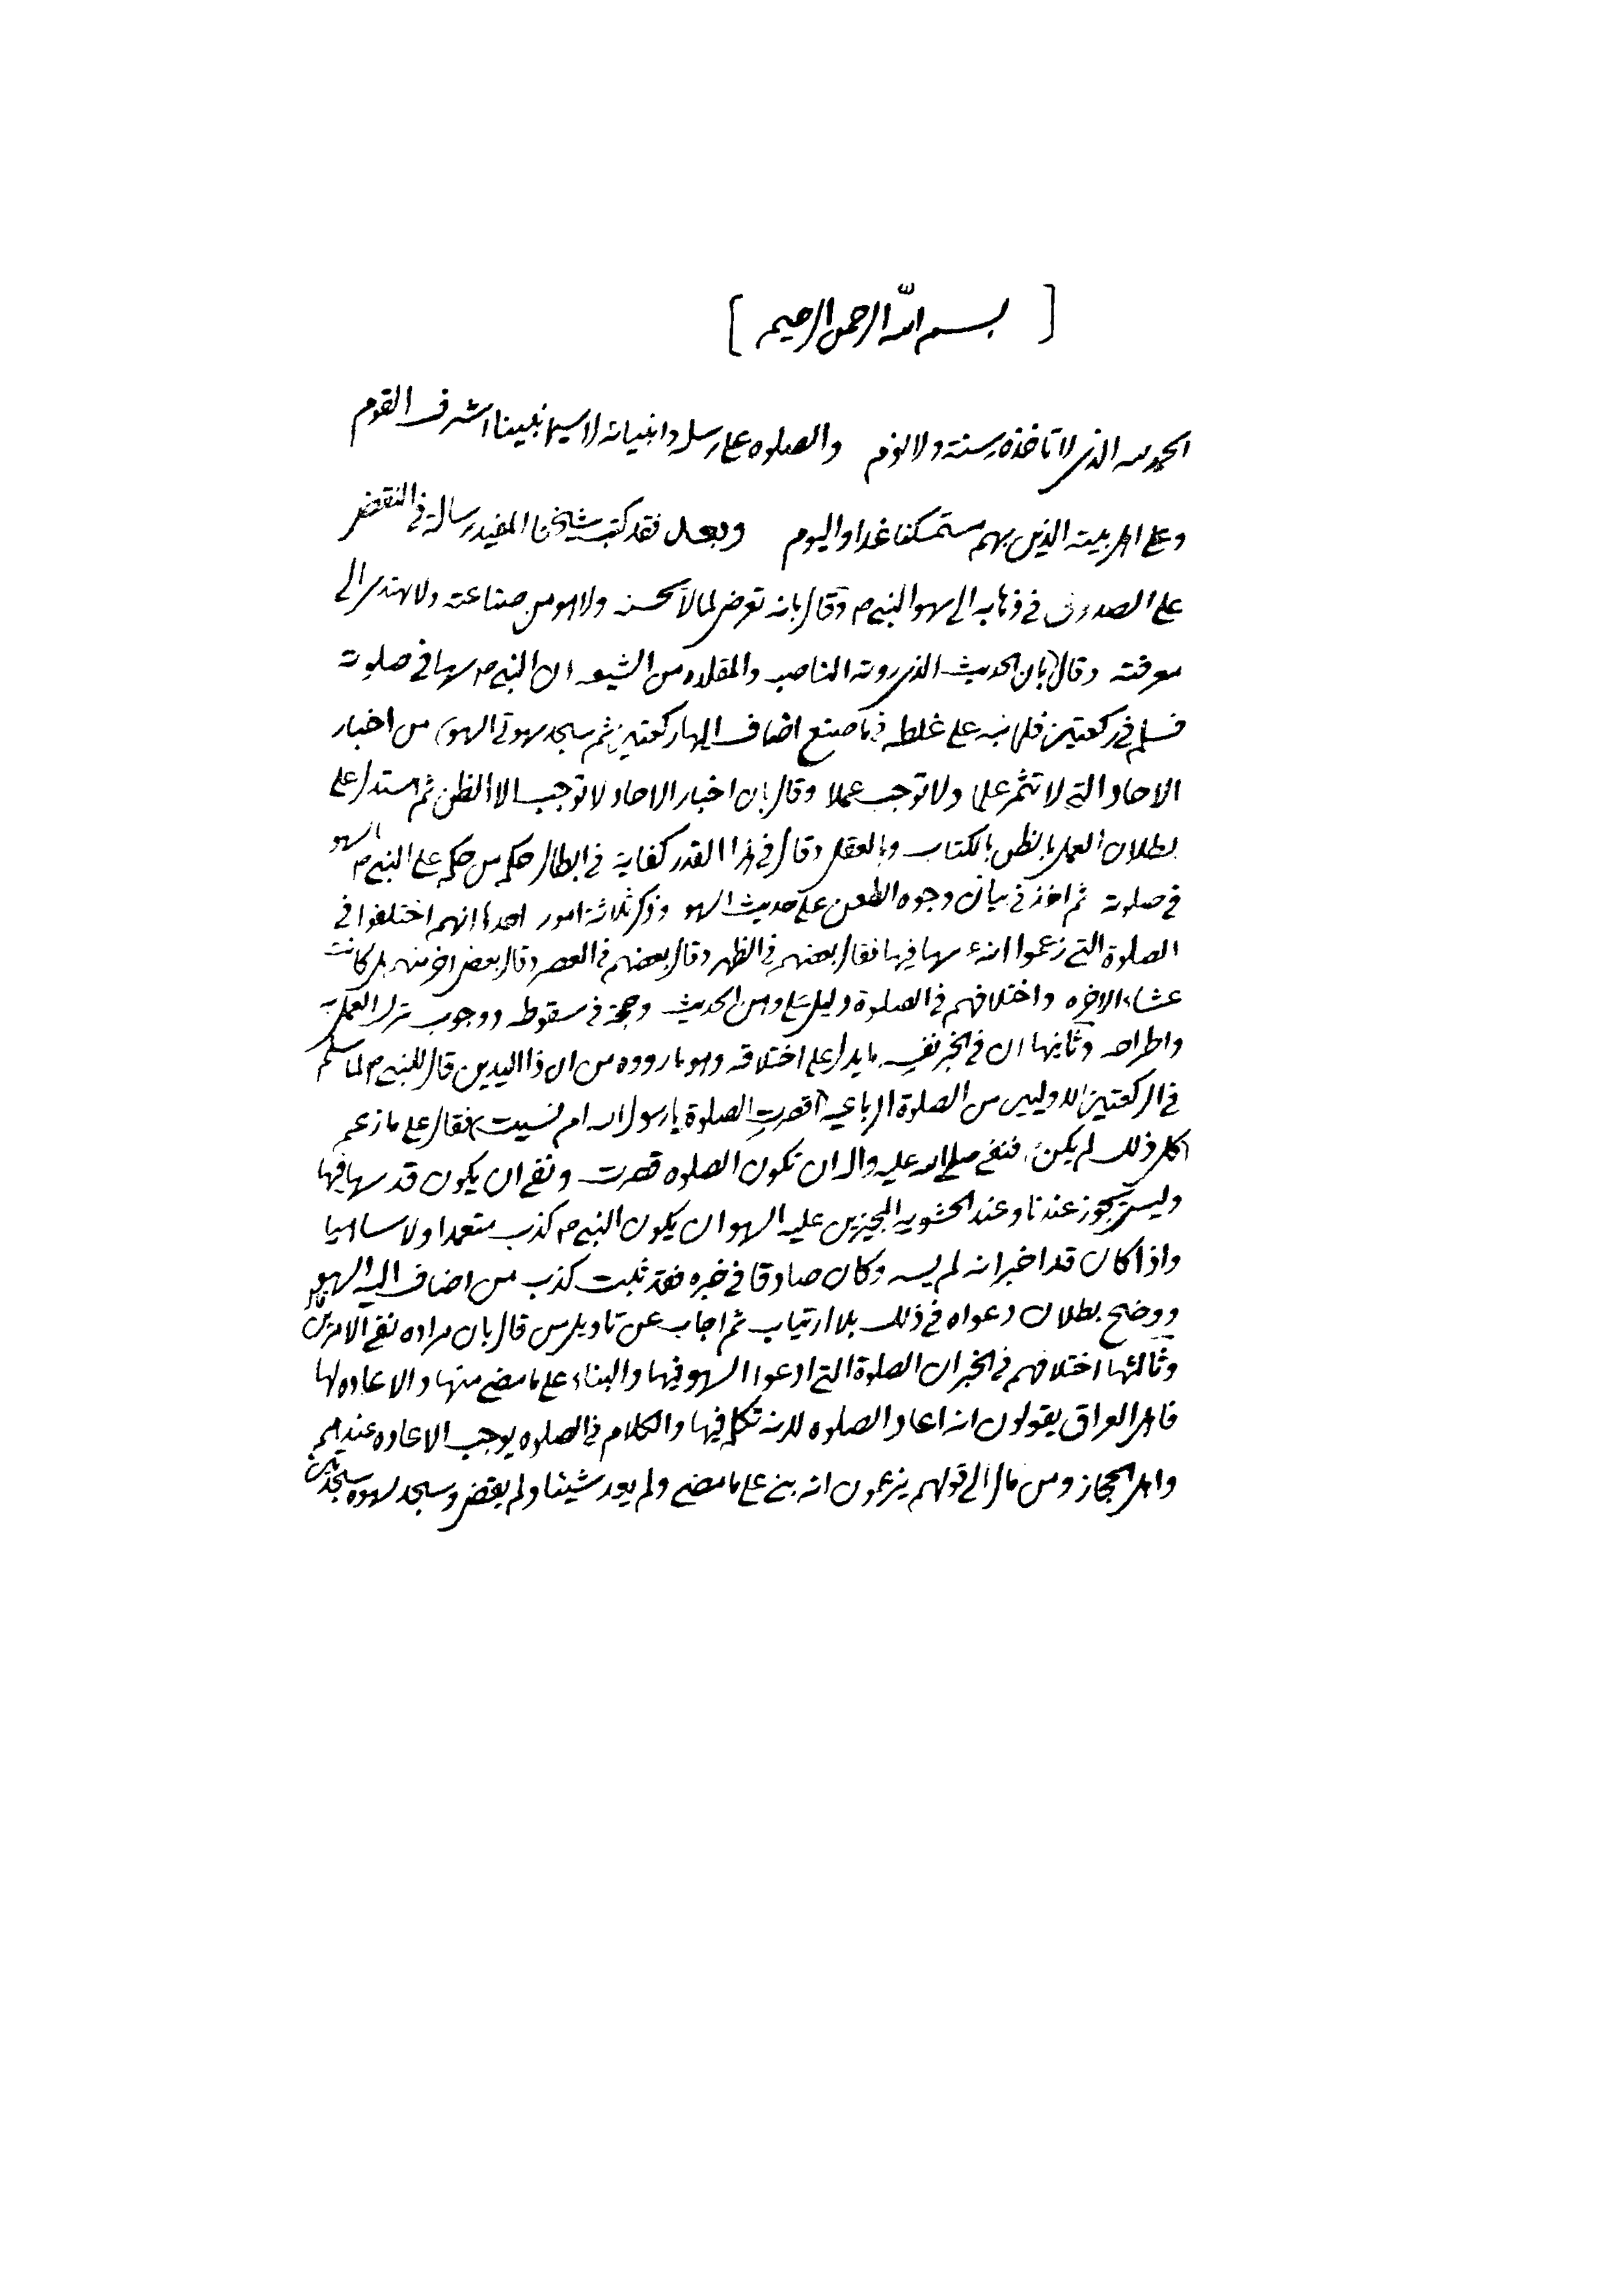 [ بسم الله الرحمن الرحيم ]
الحمد لله الذي لا تاخذه سنة ولا نوم والصلوه على رسله وانبيائه لا سيما نبينا اشرف القوم
وعلى اهل بيته الذين بهم متمسكنا غدا واليوم وبعد فقد كتب شيخنا المفيد رسالة في النقض
على الصدوق في ذهابه الى سهو النبي ص وقال بانه تعرض لما لا يحسنه ولا هو من صناعته ولا يهتدي الى
معرفته وقال بان الحديث الذي روته الناصبه والمقلده من الشيعه ان النبي ص سها في صلوته
فسلم في ركعتين فلما نبه على غلطه فيما صنع اضاف اليها ركعتين ثم سجد سهوتي السهو من اخبار
الاحاد التي لا تثمر علما ولا توجب عملا وقال بان اخبار الاحاد لا توجب الا الظن ثم استدل على
بطلان العمل بالظن بالكتاب وبالعقل وقال في هذا القدر كفاية في ابطال حكم من حكم على النبي ص بالسهو
في صلوته ثم اخذ في بيان وجوه الطعن على حديث السهو وذكر ثلاثة امور احدها انهم اختلفوا في
الصلوة التي زعموا انه ع سها فيها فقال بعضهم في الظهر وقال بعضهم في العصر وقال بعض اخر منهم بل كانت
عشاء الاخره واختلافهم في الصلوة دليل على وهن الحديث وحجة في سقوطه ووجوب ترك العمل به
واطراحه وثانيها ان في الخبر نفسه ما يدل على اختلاقه وهو ما رووه من ان ذا اليدين قال للنبي ص لما سلم
في الركعتين الاوليين من الصلوة الرباعيه اقصرت الصلوة يا رسول الله ام نسيت فقال على ما زعم
كل ذلك لم يكن فنفى صلى الله عليه واله ان تكون الصلوه قصرت ونفى ان يكون قد سها فيها
وليس يجوز عندنا وعند الحشويه المجيزين عليه السهو ان يكون النبي ص كذب متعمدا ولا ساهيا
واذا كان قد اخبر انه لم يسه وكان صادقا في خبره فقد ثبت كذب من اضاف اليه السهو
ووضح بطلان دعواه في ذلك بلا ارتياب ثم اجاب عن تاويل من قال بان مراده نفي الامرين
وثالثها اختلافهم في الخبر ان الصلوة التي ادعوا السهو فيها والبناء على ما مضى منها والاعاده لها
فاهل العراق يقولون انه اعاد الصلوه لانه تكلم فيها والكلام في الصلوه يوجب الاعاده عندهم
واهل الحجاز ومن مال الى قولهم يزعمون انه بنى على ما مضى ولم يعد شيئا ولم يقض وسجد لسهوه سجدتين